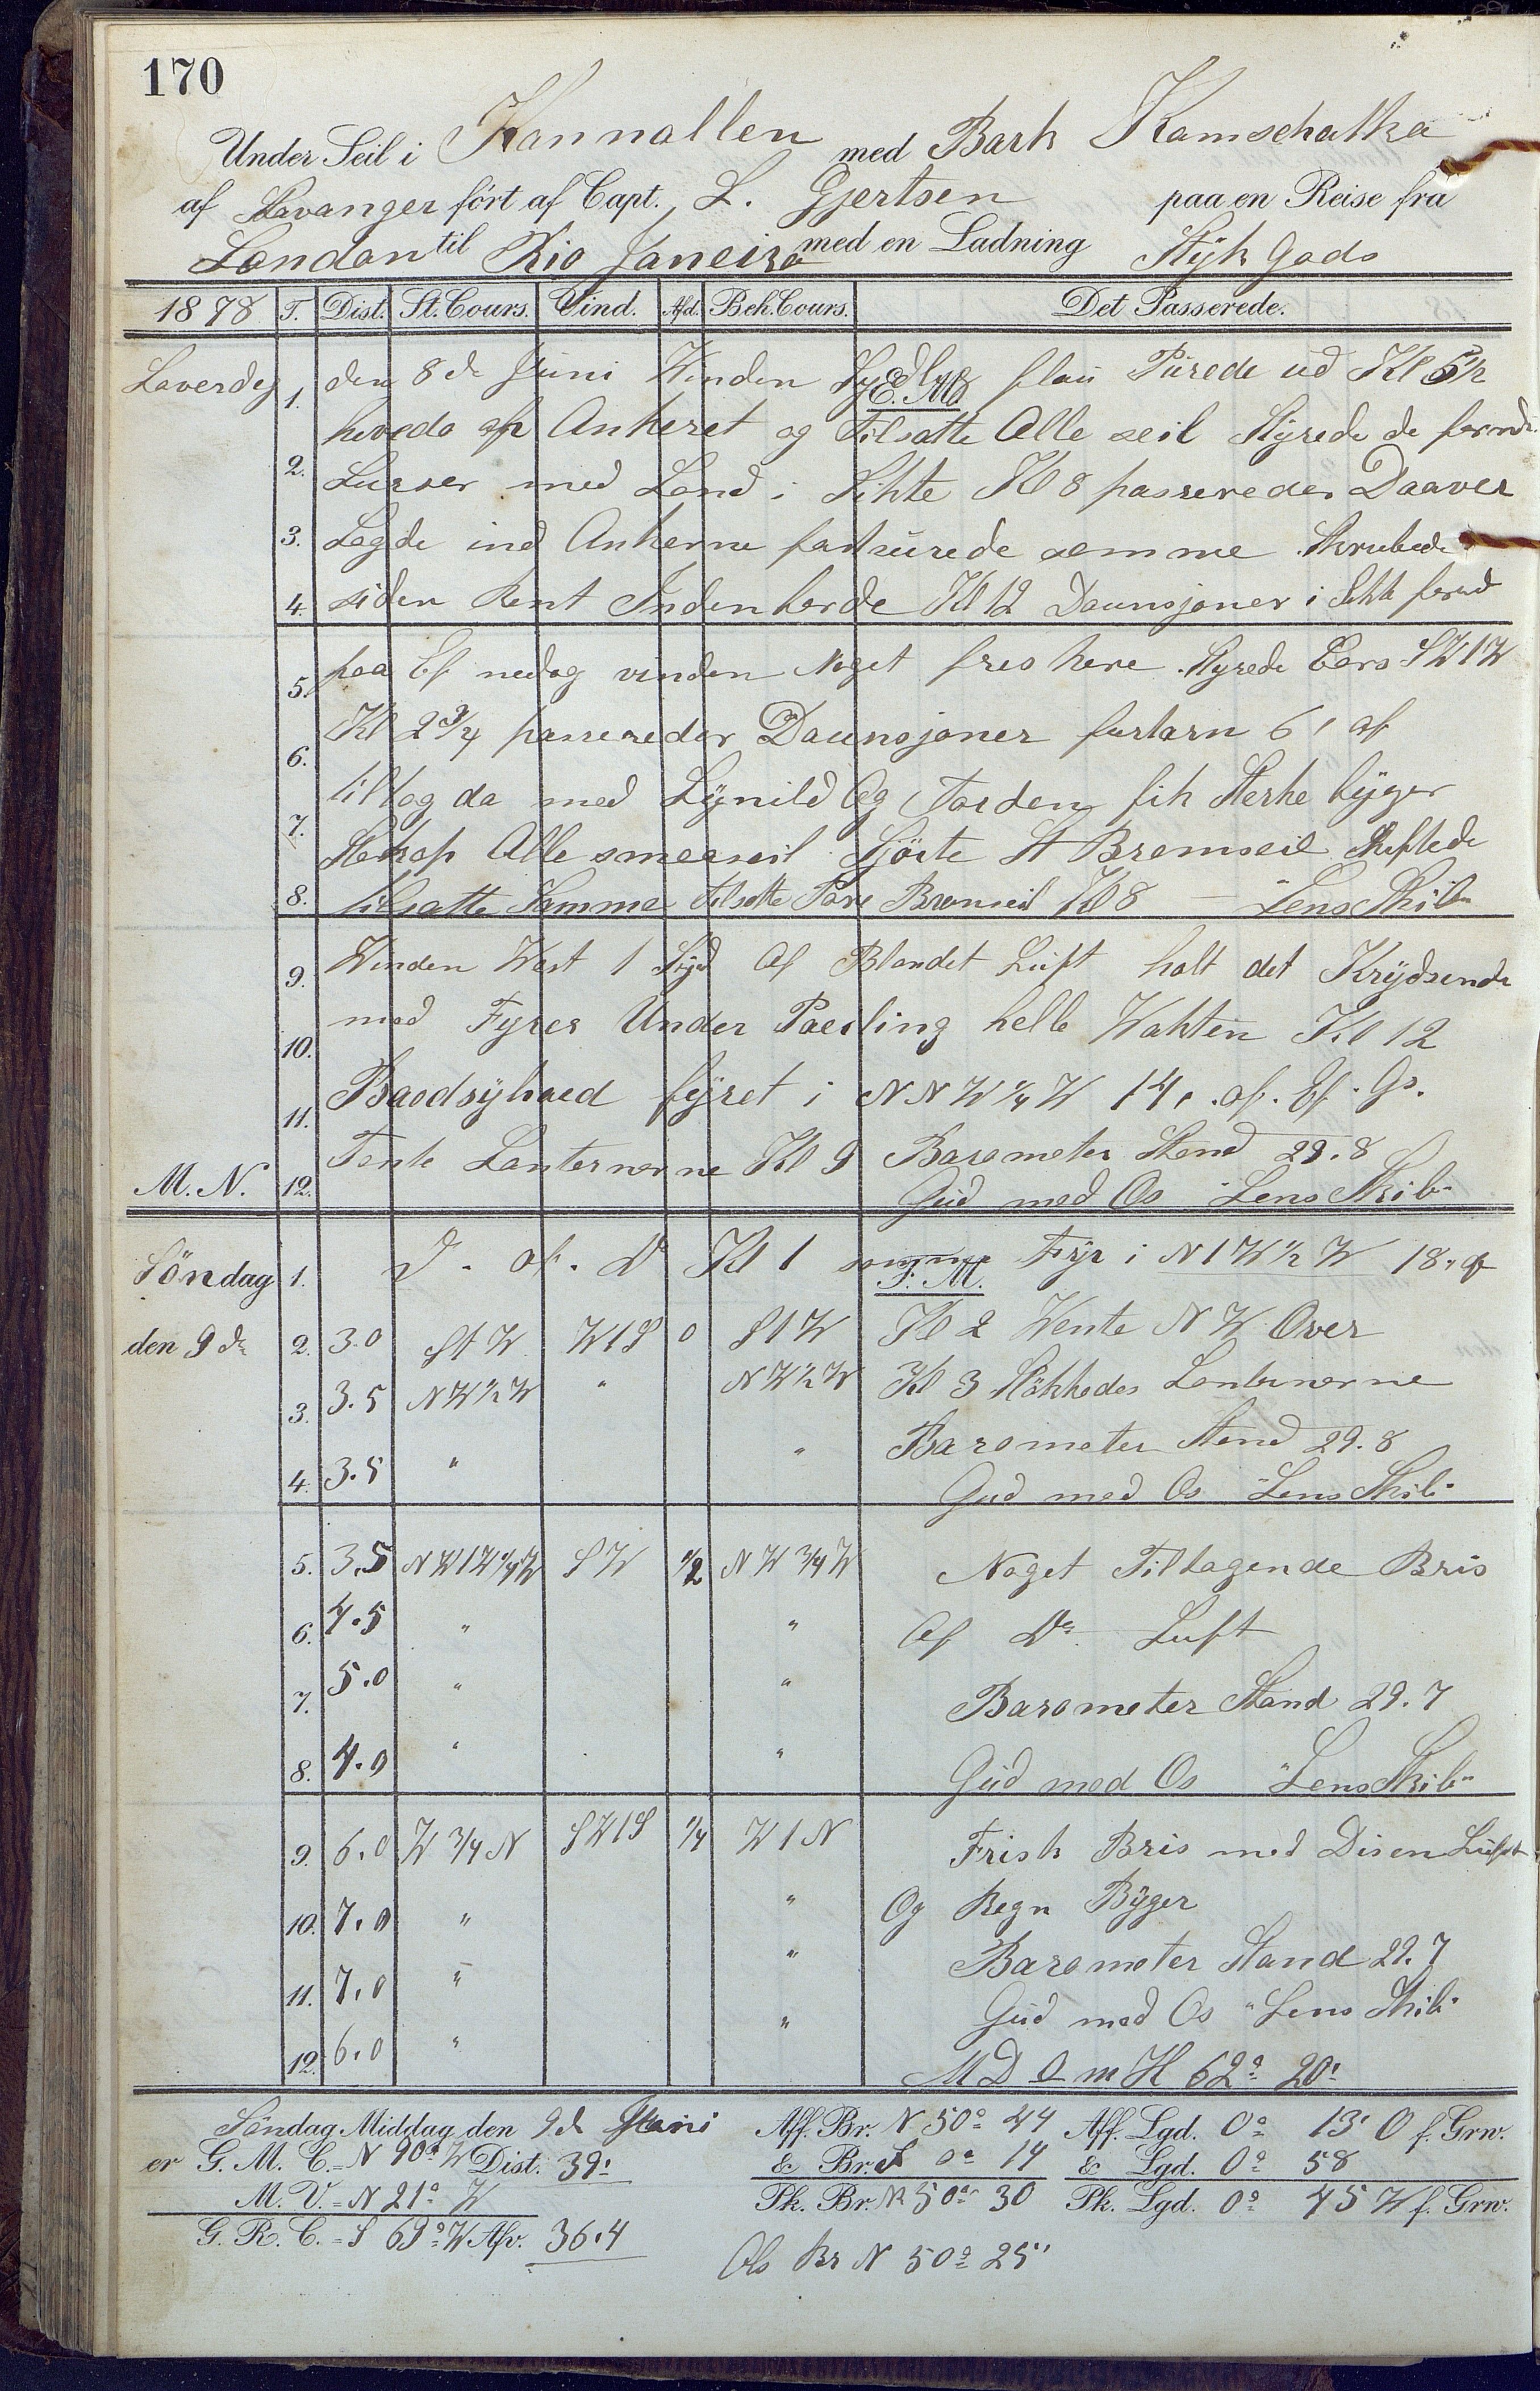 170
Under Seil i Kannallen med Bark Kamschatka
af Stavanger fört af Capt. L. Gjertsen paa en Reise fra
London til Rio Janeiro med en Ladning Styk Gods
1878 T. Dist. St. Cours. Vind. Afd. Beh. Cours. Det Passerede.
E. M.
Loverdag 1. den 8 de Juni Vinden Sydlig flau Purede ud Kl 5½
hevede op Ankeret og Tilsatte Alle seil Styrede de
2. Curser med Land i Sikte Kl 8 passerede Daaver
3. Lagde ind Ankerne fastsurede samme Skrubede
4. siden Rent Indenborde Kl 12 Daunsjoner i Sikt forud
5. paa Ef nedag vinden Noget friskere Styrede Cors SW1W
6. Kl 2¾ passerede Daunsjoner 6' af
tiltog da med Lynild Og Torden fik Sterke byger
7. Alle smaaseil St Bramseil
8. tilsatte Samme tilsatte Bramseil Kl 8 — "Lens Skib"
9. Vinden West 1 Syd Af Blandet Luft holt det Krydsende
10. med Fyrer Under Paesling helle Wakten Kl 12
11. fyret i NNW¼W 14' af. Ef. Gs.
Tente Lanternerne Kl 9 Barometer Stand 29.8
M. N. 12. Gud med Os "Lens Skib"
F. M.
Söndag 1. D. af. D Kl 1 samme Fyr i N1W½W 18" af
den 9 de 2. 3.0 S1W W1S 0 S1W Kl 2 Wente NW Over
3. 3.5 NW½W " NW½W Kl 3 Slökkedes Lanternerne
4. 3.5 " " Barometer Stand 29.8
Gud med Os "Lens Skib"
5. 3.5 NW1W¼W SW ½ NW¾W Noget Tiltagende Bris
6. 4.5 " " Af Do Luft
7. 5.0 " " Barometer Stand 29.7
8. 4.0 " " Gud med Os "Lens Skib"
9. 6.0 W¾N SW1S ¼ W1N Frisk Bris med Disen Luft
10. 7.0 " " Og Regn Byger
11. 7.0 " " Barometer Stand 29.7
Gud med Os "Lens Skib"
12. 6.0 " " M D O m H 62° 20'
Söndag Middag den 9 de Juni Aff. Br. N 50° 44 Aff. Lgd. 0° 13' O f. Grw.
er G. M. C. = N 90° W Dist. 39' & Br. S 0° 14 & Lgd. 0° 58
M. V. = N 21° W Pk. Br. N 50° 30 Pk. Lgd. 0° 45 W f. Grw.
G. R. C. = S 69° W Afv. 36.4
Obs Br N 50° 25'